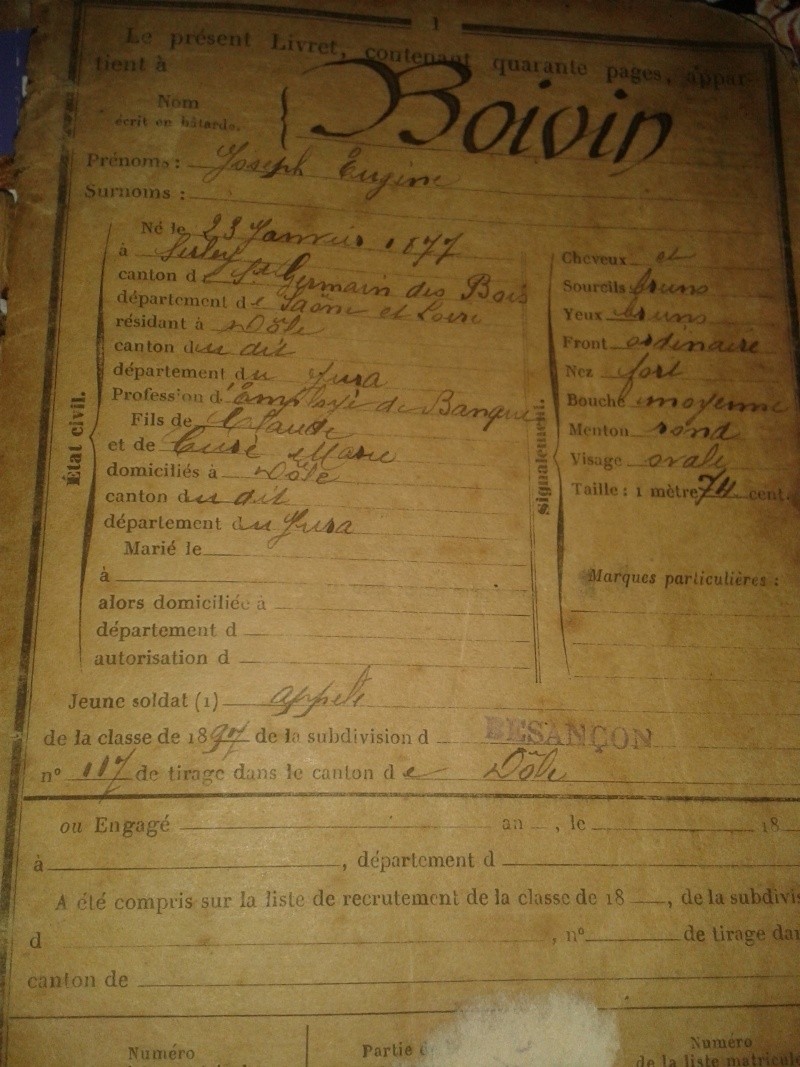 1
Le présent Livret, contenant quarante pages, appar-
tient à
Nom
écrit en bâtarde.
Boivin
Prénoms : Joseph Eugène
Surnoms :
État civil.
Né le 23 Janvier 1877
à
canton de St Germain des Bois
département de Saône et Loire
résidant à Dôle
canton du dit
département du Jura
Profession d'Employé de Banque
Fils de Claude
et de Marie
domiciliés à Dôle
canton du dit
département du Jura
Marié le
à
alors domiciliée à
département d
autorisation d
Signalement.
Cheveux et
Sourcils bruns
Yeux bruns
Front ordinaire
Nez fort
Bouche moyenne
Menton rond
Visage ovale
Taille : 1 mètre 74 cent.
Marques particulières :
Jeune soldat (1) appelé
de la classe de 1897 de la subdivision d BESANÇON
n° 117 de tirage dans le canton de Dôle
ou Engagé an , le 18
à , département d
A été compris sur la liste de recrutement de la classe de 18 , de la subdivis
d , n° de tirage dan
canton de
Numéro
Partie
Numéro
de la liste matricule